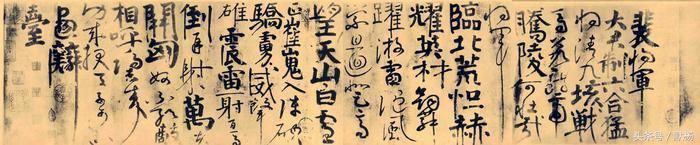 裴將軍
大君制六合猛
將清九垓戰
馬若龍虎
騰陵何壯哉
將軍
臨北荒恒赫
耀英材劍舞
躍游電隨風
縈且迴登高
望天山白雲
正崔嵬入陣破
驕虜威聲
雄震雷一射百馬
倒再射萬夫
開匈奴不敢敵
相呼歸去來
功成報天子
畫麟
臺
头条号